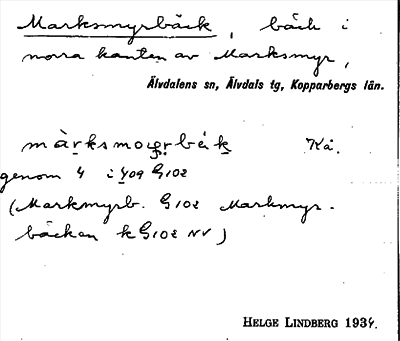 Marksmyrbäck, bäck i
norra kanten av Marksmyr,
Älvdalens sn, Älvdals tg, Kopparbergs län.
Kå.
genom 4 i 409 G102
(Markmyrb. G102 Markmyr-
bäcken k G102 NV)
HELGE LINDBERG 1934.